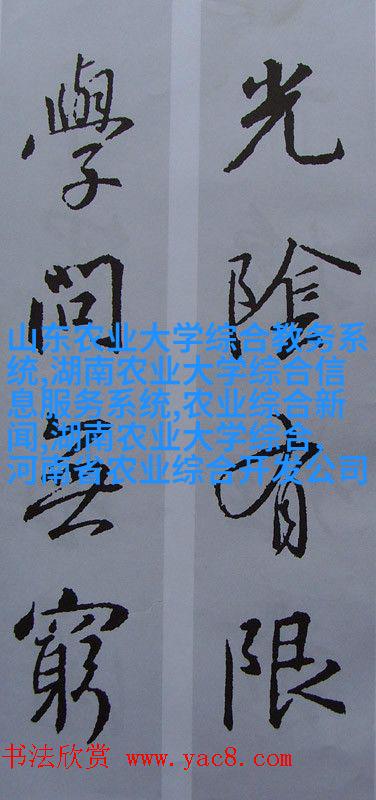 光陰有限
學問無窮
山东农业大学综合教务系
统,湖南农业大学综合信
息服务系统,农业综合新
闻,湖南农业大学综合
河南省农业综合开发公司
书法欣赏 www.yac8.com